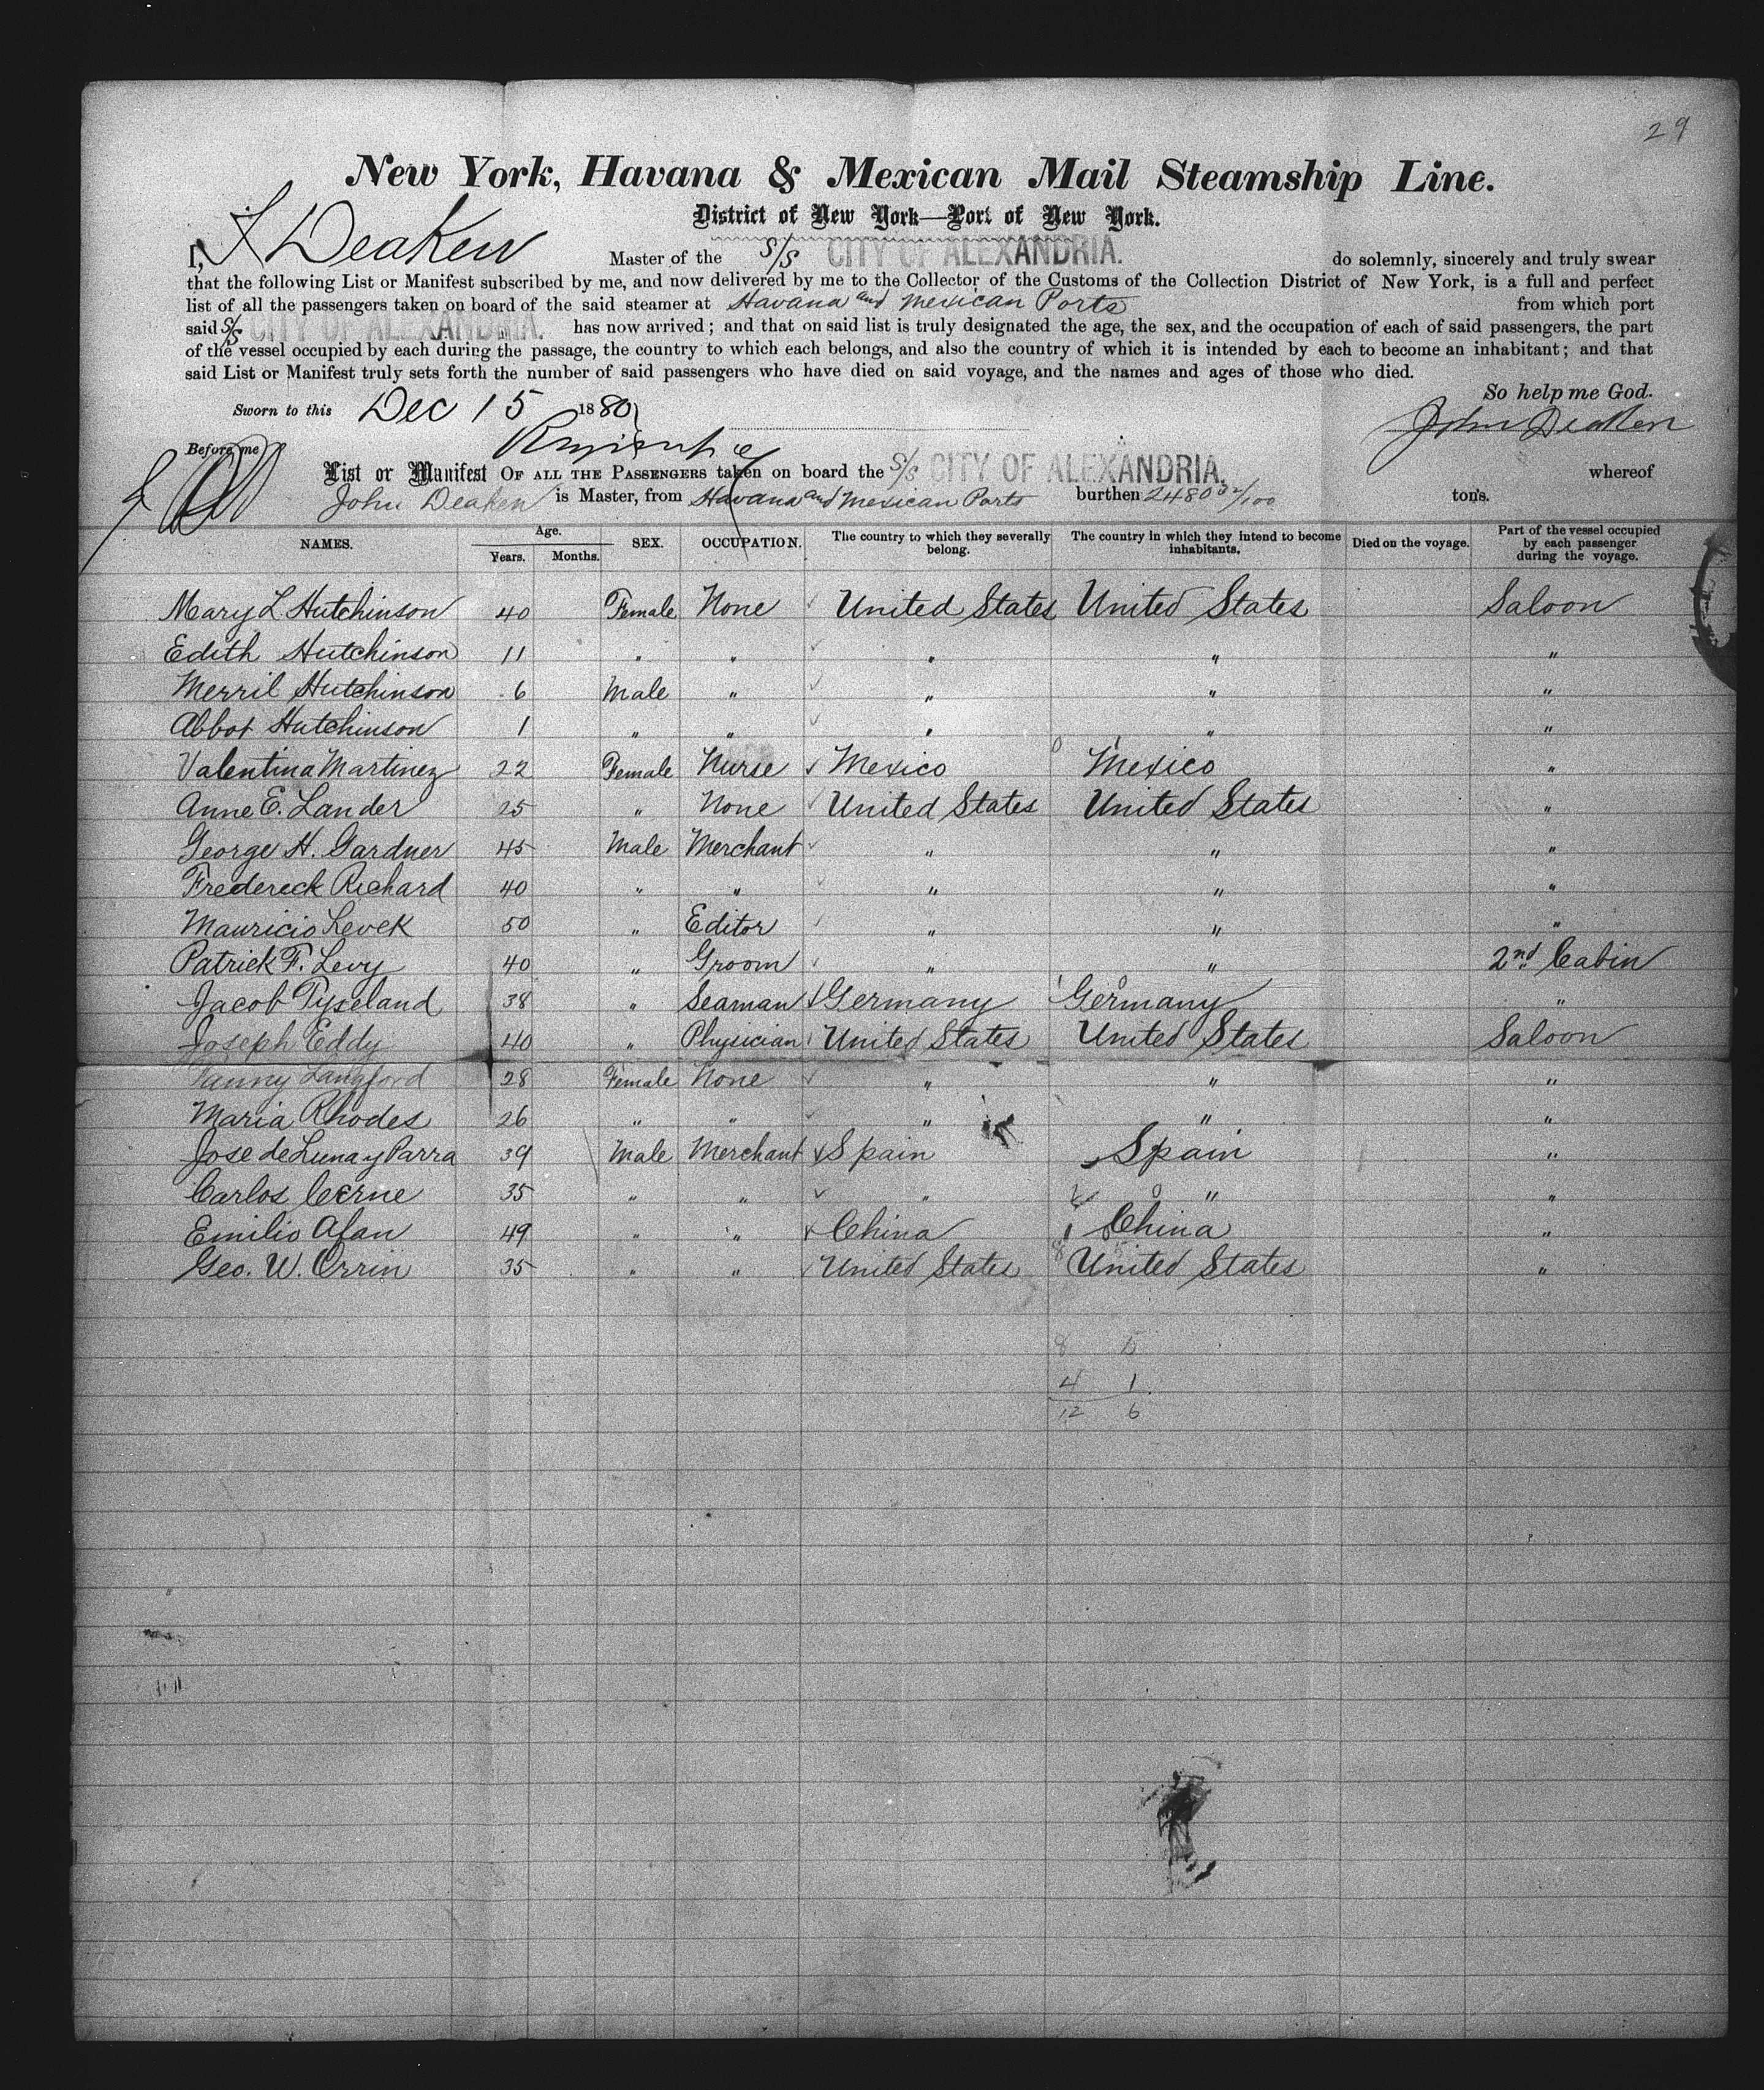 29
New York, Havana & Mexican Mail Steamship Line.
District of New York—Port of New York.
I, J Deaken Master of the S/S CITY OF ALEXANDRIA. do solemnly, sincerely and truly swear
that the following List or Manifest subscribed by me, and now delivered by me to the Collector of the Customs of the Collection District of New York, is a full and perfect
list of all the passengers taken on board of the said steamer at Havana and Mexican Ports from which port
said S/S CITY OF ALEXANDRIA. has now arrived; and that on said list is truly designated the age, the sex, and the occupation of each of said passengers, the part
of the vessel occupied by each during the passage, the country to which each belongs, and also the country of which it is intended by each to become an inhabitant; and that
said List or Manifest truly sets forth the number of said passengers who have died on said voyage, and the names and ages of those who died.
So help me God.
Sworn to this Dec 15 1880
John Deaken
Before me
List or Manifest OF ALL THE PASSENGERS taken on board the S/S CITY OF ALEXANDRIA. whereof
John Deaken is Master, from Havana and Mexican Ports burthen 2480 32/100 tons.
NAMES. Age. Years. Months. SEX. OCCUPATION. The country to which they severally belong. The country in which they intend to become inhabitants. Died on the voyage. Part of the vessel occupied by each passenger during the voyage.
Mary L Hutchinson 40 Female None United States United States Saloon
Edith Hutchinson 11 " " " " "
Merril Hutchinson 6 Male " " " "
Abbot Hutchinson 1 " " " " "
Valentina Martinez 22 Female Nurse Mexico Mexico "
Anne E. Lander 25 " None United States United States "
George H. Gardner 45 Male Merchant " " "
Frederick Richard 40 " " " " "
Mauricio Levek 50 " Editor " " "
Patrick F. Levy 40 " Groom " " 2nd Cabin
Jacob Tyseland 38 " Seaman Germany Germany "
Joseph Eddy 40 " Physician United States United States Saloon
Fanny Langford 28 Female None " " "
Maria Rhodes 26 " " " " "
Jose de Luna y Parra 39 Male Merchant Spain Spain "
Carlos Cerne 35 " " " " "
Emilio Afan 49 " " China China "
Geo. W. Orrin 35 " " United States United States "
8 5
4 1
12 6